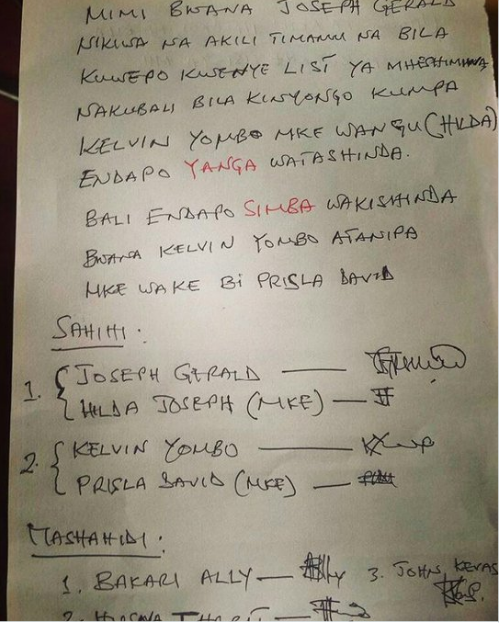 MIMI BWANA JOSEPH GERALD
NIKIWA NA AKILI TIMAMU NA BILA
KUWEPO KWENYE LIST YA
NAKUBALI BILA KINYONGO KUMPA
KELVIN YOMBO MKE WANGU (HILDA)
ENDAPO YANGA WATASHINDA.
BALI ENDAPO SIMBA WAKISHINDA
BWANA KELVIN YOMBO ATANIPA
MKE WAKE Bi PRISLA DAVID
SAHIHI:
1. { JOSEPH GERALD ——
HILDA JOSEPH (MKE) —
2. { KELVIN YOMBO ——
PRISLA DAVID (MKE) —
MASHAHIDI:
1. BAKARI ALLY — 3. JOHN, KEVAS
2.